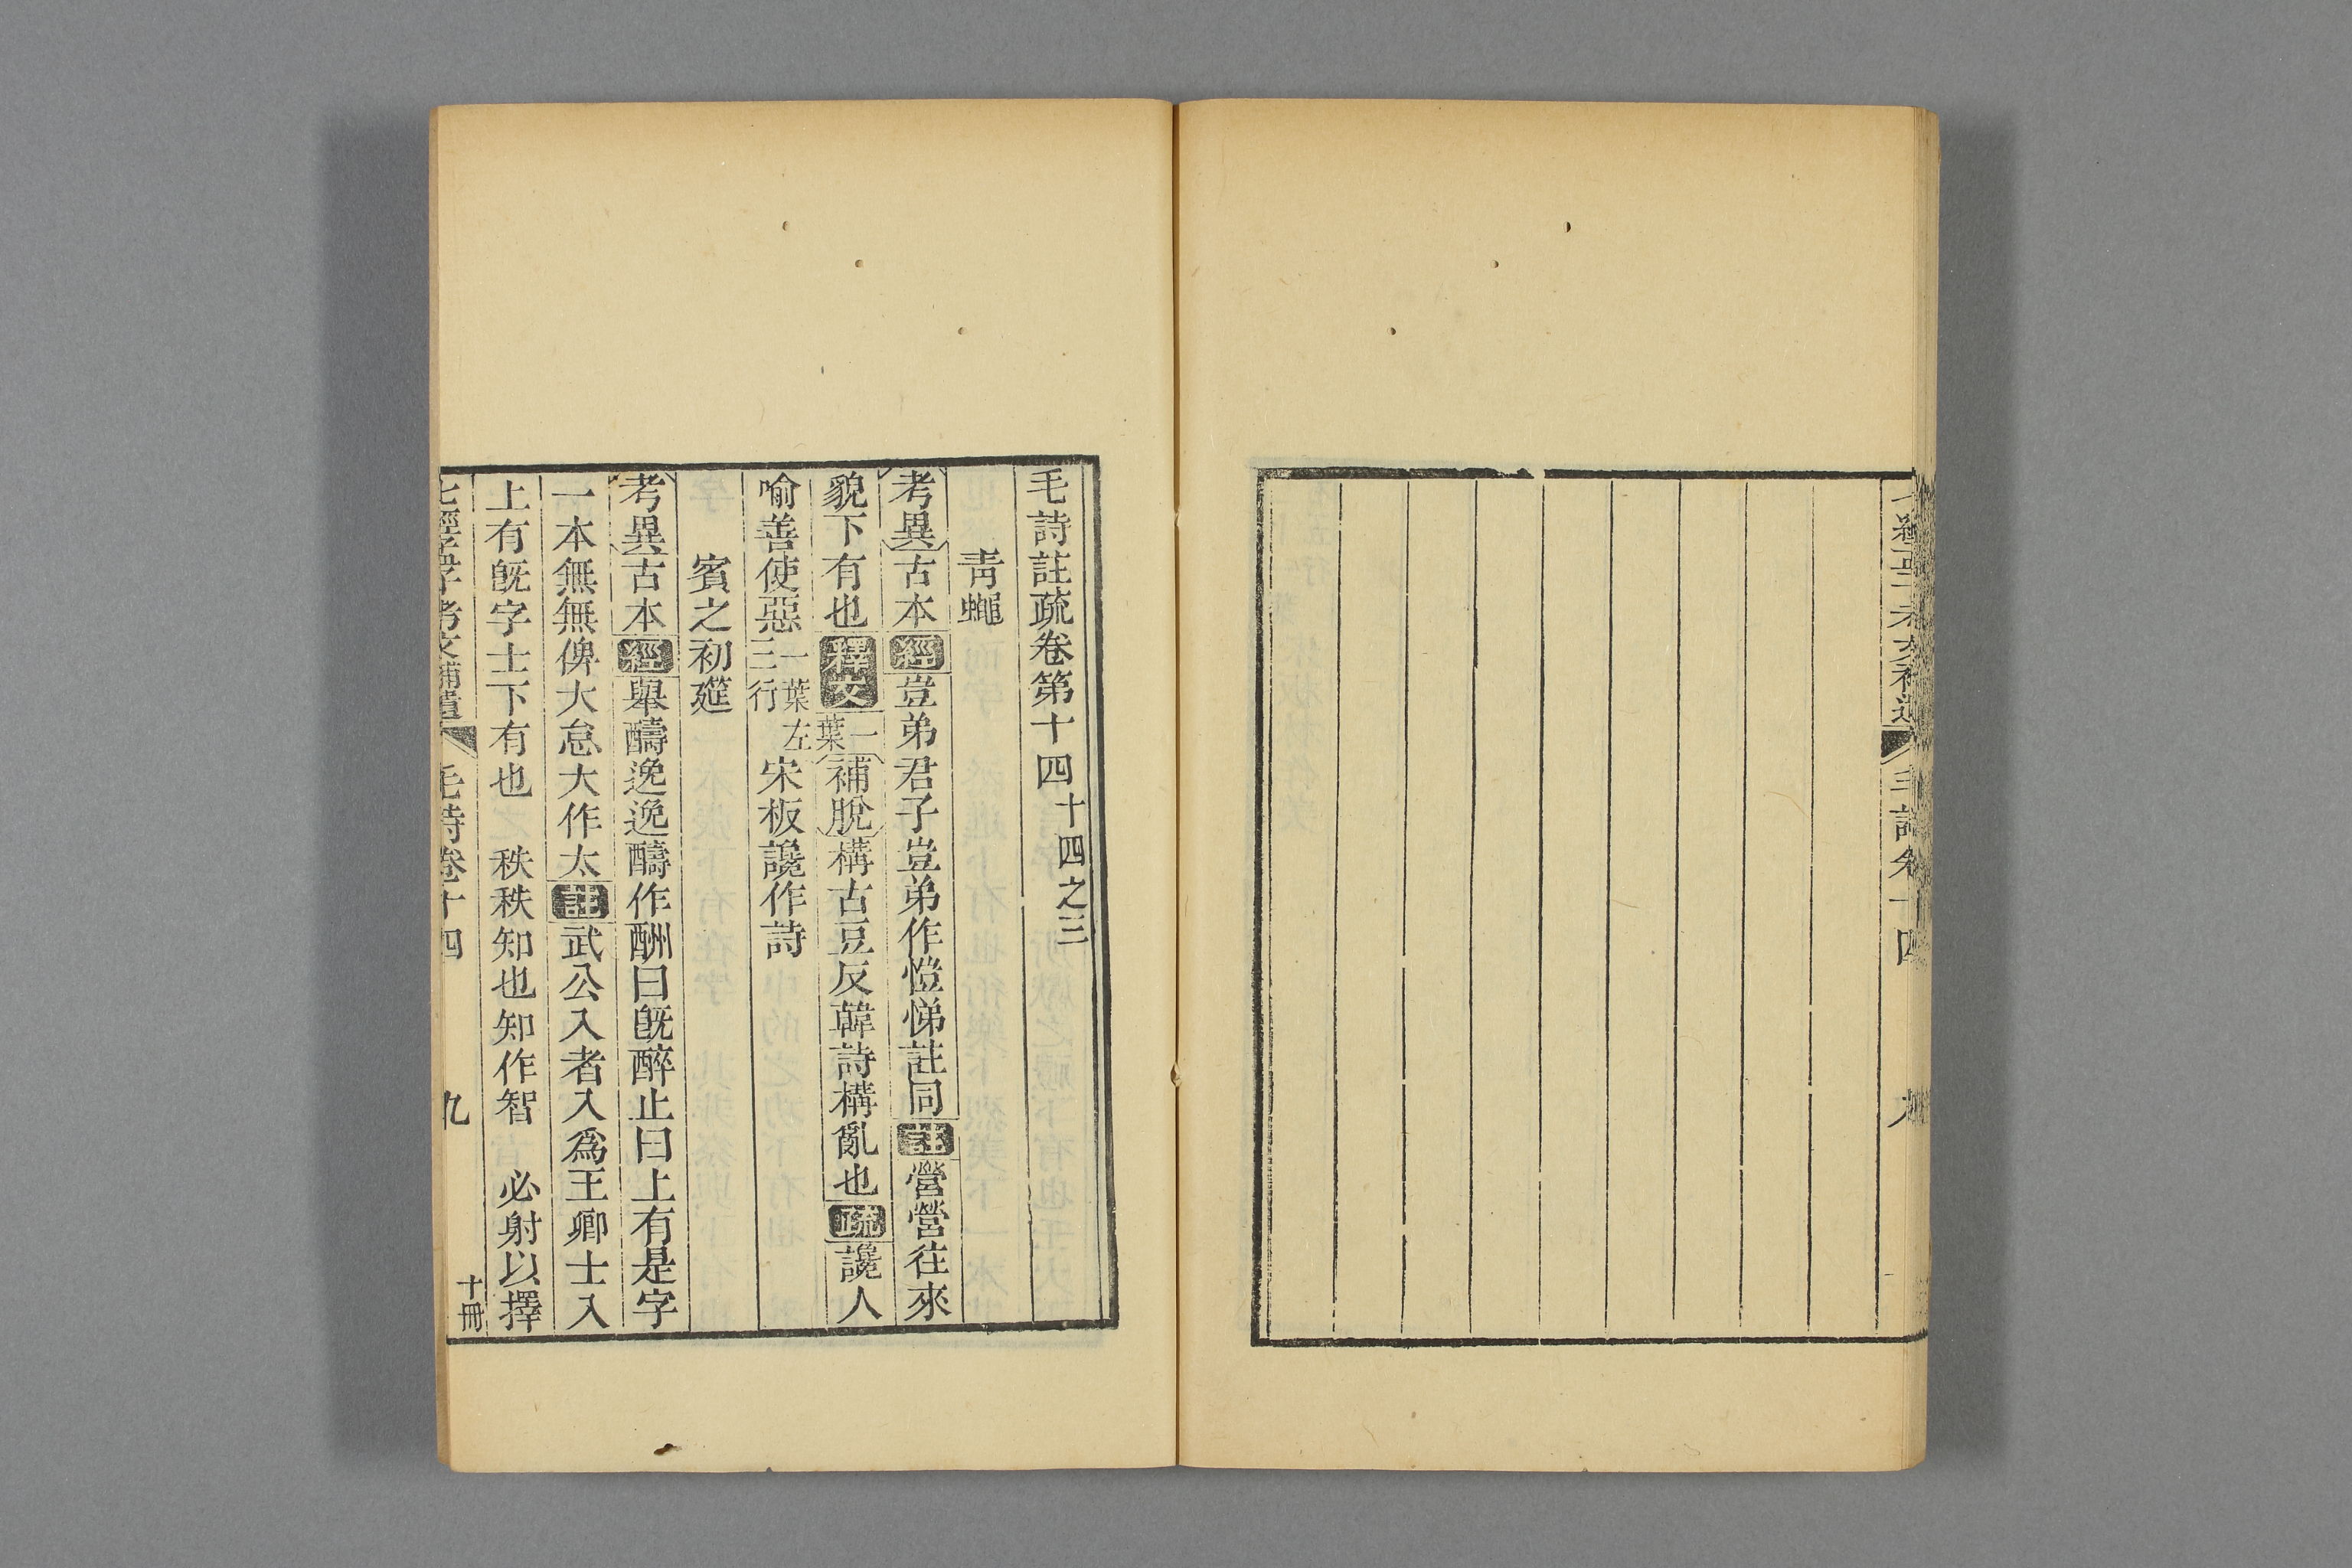 毛詩卷十四
毛詩註疏卷第十四十四之三
青蠅
考異古本經豈弟君子豈弟作愷悌註同註營營往來
貌下有也釋文一葉補脫構古豆反韓詩構亂也疏讒人
喻善使惡一葉左三行宋板讒作詩
賓之初筵
考異古本經舉醻逸逸醻作酬曰既醉止曰上有是字
一本無無俾大怠大作太註武公入者入爲王卿士入
上有既字士下有也　秩秩知也知作智　必射以擇
七經孟子考文補遺　毛詩卷十四　九　十冊